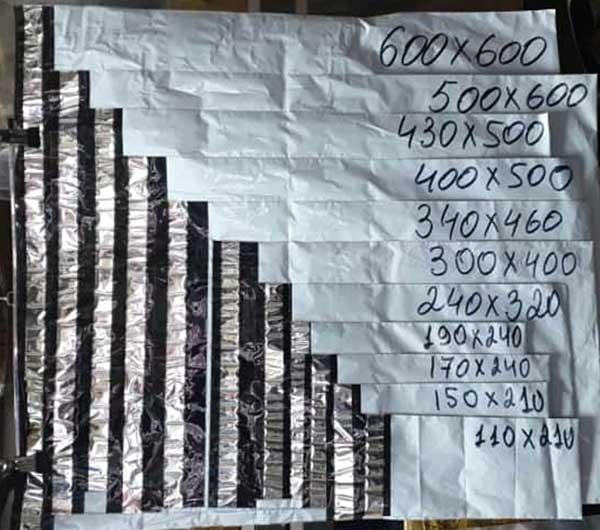 600x600
500x600
430x500
400x500
340x460
300x400
240x320
190x240
170x240
150x210
110x210